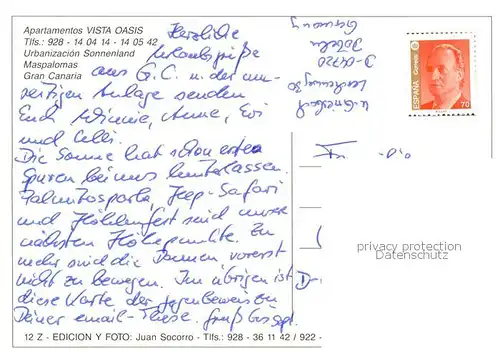 Apartamentos VISTA OASIS
Tlfs.: 928 - 14 04 14 - 14 05 42
Urbanización Sonnenland
Maspalomas
Gran Canaria
Herzliche
Urlaubsgrüße
aus G.C. u. der um-
seitigen Anlage senden
Euch Winnie, Anne, Evi
und Celli.
Die Sonne hat schon erste
Spuren bei uns hinterlassen.
Palmitospark, Jeep-Safari
und Höhlenfest sind unsere
nächsten Höhepunkte. Zu
mehr sind die Damen vorerst
nicht zu bewegen. Im übrigen ist
diese Karte der Gegenbeweis zu
Deiner email-These. Gruß
12 Z - EDICION Y FOTO: Juan Socorro - Tlfs.: 928 - 36 11 42 / 922 -
D-04720
Döbeln
Germany
ESPAÑA
Correos
70
Fr.
D-
privacy protection
Datenschutz